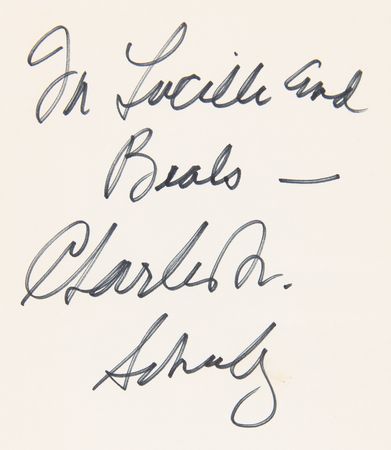 For Lucille and
Beals —
Charles M.
Schulz